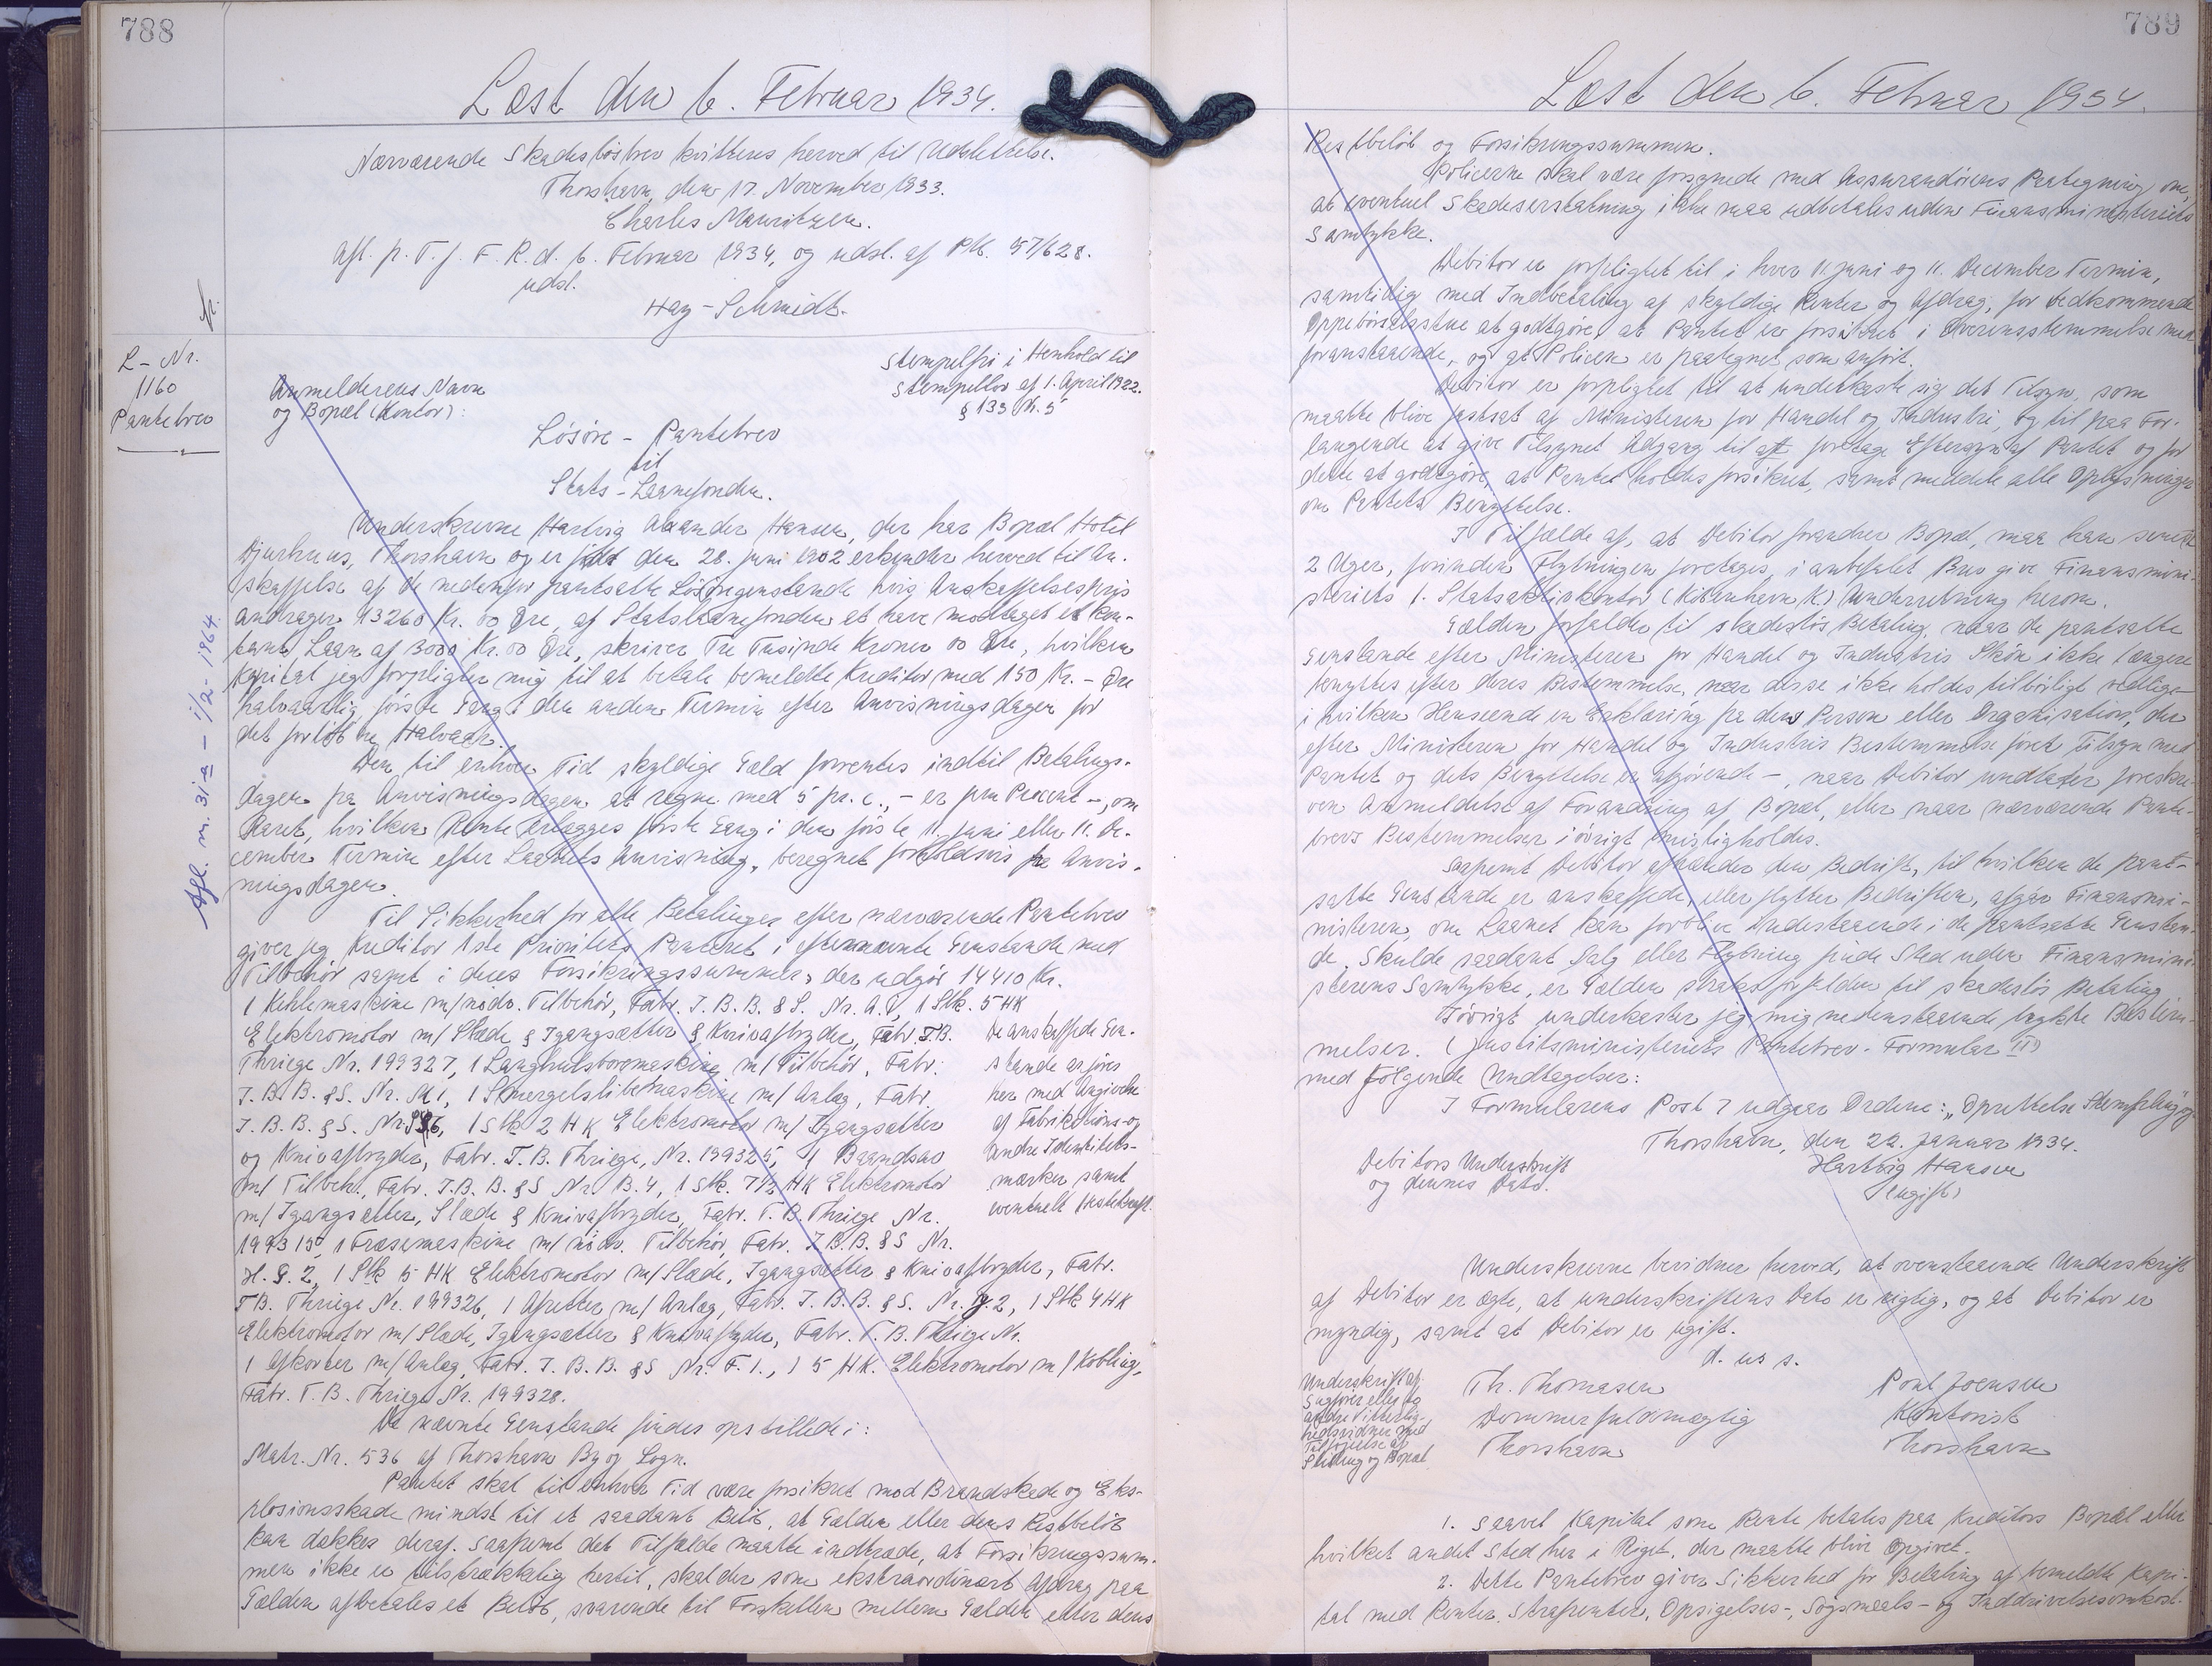 788
Læst den 6. Februar 1934.
Nærværende Skadesløsbrev kvitteres herved til Udslettelse.
Thorshavn, den 17. November 1933.
Charles Mauritzen.
Afl. p. T. f. F. R. d. 6. Februar 1934, og udsl. af Ptb. 57/628.
udsl.
Hay-Schmidt.
fr.
L-Nr.
1160
Pantebrev
Afl. m. 31a - 1/2-1964.
Anmelderens Navn
og Bopæl (Kontor):
Stempelfri i Henhold til
Stempellov af 1. April 1922.
§ 133 Nr. 5
Løsøre - Pantebrev
til
Stats-Laanefonden.
Underskrevne Hartvig Hansen, der har Bopæl Hotel
Djurhuus, Thorshavn og er født den 28. juni 1902 erkender herved til An-
skaffelse af de nedenfor pantsatte Løsøregenstande hvis Anskaffelsespris
andrager 13260 Kr. 00 Øre, af Statslaanefonden at have modtaget et kon-
tant Laan af 3000 Kr. 00 Øre, skriver Tre Tusinde Kroner 00 Øre, hvilken
Kapital jeg forpligter mig til at betale bemeldte Kreditor med 150 Kr. - Øre
halvaarlig, første Gang i den anden Termin efter Anvisningsdagen for
det forløbne Halvaar.
Den til enhver Tid skyldige Gæld forrentes indtil Betalings-
dagen fra Anvisningsdagen at regne med 5 pr. c., - er fem Procent -, om
Aaret, hvilken Rente erlægges første Gang i den første 11. Juni eller 11. De-
cember Termin efter Laanets Anvisning, beregnet forholdsvis fra Anvis-
ningsdagen.
Til Sikkerhed for alle Betalinger efter nærværende Pantebrev
giver jeg Kreditor 1ste Prioritets Panteret i efternævnte Genstande med
Tilbehør samt i deres Forsikringssummer, der udgør 14410 Kr.
1 Kehlemaskine m/ nødv. Tilbehør, Fabr. J. B. B. & S. Nr. A.8, 1 Stk. 5 HK
Elektromotor m/ Slæde & Igangsætter & Knivafbryder, Fabr. T.B.
Thrige Nr. 199327, 1 Langhulsboremaskine m/ Tilbehør, Fabr.
J. B. B. & S. Nr. M 1, 1 Smergelslibemaskine m/ Anlæg, Fabr.
J. B. B. & S. Nr. 1 Stk 2 HK Elektromotor m/ Igangsætter
og Knivafbryder, Fabr. T. B. Thrige, Nr. 199325, 1 Baandsav
m/ Tilbehr., Fabr. J. B. B. & S Nr. B. 4, 1 Stk. 7 1/2 HK Elektromotor
m/ Igangsætter, Slæde & Knivafbryder, Fabr. T. B. Thrige Nr.
199315, 1 Fræsemaskine m/ nødv. Tilbehør, Fabr. J. B. B. & S Nr.
De anskaffede Gen-
stande anføres
her med Angivelse
af Fabrikations- og
andre Identitets-
mærker samt
eventuelt Hestekraft.
H. G. 2, 1 Stk 5 HK Elektromotor m/ Slæde, Igangsætter & Knivafbryder, Fabr.
T B. Thrige Nr. 199326, 1 Afretter m/ Anlæg, Fabr. J. B. B. & S. Nr. J. 2, 1 Stk 4 HK
Elektromotor m/ Slæde, Igangsætter & Knivafbryder, Fabr. T. B. Thrige Nr.
1 Afkorter m/ Anlæg, Fabr. J. B. B. & S Nr. F. 1., 1 5 HK. Elektromotor m/ Kobling,
Fabr. T. B. Thrige Nr. 199328.
De nævnte Genstande findes opstillede i:
Matr. Nr. 536 af Thorshavn By og Sogn.
Pantet skal til enhver Tid være forsikret mod Brandskade og Eks-
plosionsskade mindst til et saadant Beløb, at Gælden eller dens Restbeløb
kan dækkes deraf. Saafremt det Tilfælde maatte indtræde, at Forsikringssum-
men ikke er tilstrækkelig hertil, skal der som ekstraordinært Afdrag paa
Gælden afbetales et Beløb, svarende til Forskellen mellem Gælden eller dens
789
Læst den 6. Februar 1934.
Restbeløb og Forsikringssummen.
Policerne skal være forsynede med Assurandørens Paategning om,
at eventuel Skadeserstatning ikke maa udbetales uden Finansministeriets
Samtykke.
Debitor er forpligtet til i hver 11. juni og 11. December Termin,
samtidig med Indbetaling af skyldige Renter og Afdrag, for vedkommende
Oppebørselsstue at godtgøre, at Pantet er forsikret i Overensstemmelse med
foranstaaende, og at Policen er paategnet som anført.
Debitor er forpligtet til at underkaste sig det Tilsyn, som
maatte blive fastsat af Ministeren for Handel og Industri, og til paa For-
langende at give Tilsynet Adgang til at foretage Eftersyn af Pantet og for
dette at godtgøre, at Pantet holdes forsikret, samt meddele alle Oplysninger
om Pantets Benyttelse.
I Tilfælde af, at Debitor forandrer Bopæl, maa han senest
2 Uger, forinden Flytningen foretages, i anbefalet Brev give Finansmini-
steriets 1. Statsaktivkontor (København K) Underretning herom.
Gælden forfalder til skadesløs Betaling, naar de pantsatte
Genstande efter Ministeren for Handel og Industris Skøn ikke længere
benyttes efter deres Bestemmelse, naar disse ikke holdes tilbørligt vedlige
i hvilken Henseende en Erklæring fra den Person eller Organisation, der
efter Ministeren for Handel og Industris Bestemmelse fører Tilsyn med
Pantet og dets Benyttelse er afgørende -, naar Debitor undlader foreskre-
ven Anmeldelse af Forandring af Bopæl, eller naar nærværende Pante-
brevs Bestemmelser i øvrigt misligholdes.
Saafremt Debitor afhænder den Bedrift, til hvilken de pant-
satte Genstande er anskaffede, eller flytter Bedriften, afgør Finansmi-
nisteren, om Laanet kan forblive indestaaende i de pantsatte Genstan-
de. Skulde saadant Salg eller Flytning finde Sted uden Finansmini-
sterens Samtykke, er Gælden straks forfalden til skadesløs Betaling
Iøvrigt underkaster jeg mig nedenstaaende trykte Bestem-
melser. (Justitsministeriets Pantebrev-Formular III)
med følgende Undtagelser:
I Formularens Post 7 udgaar Ordene: „Oprettelse Stempling og
Thorshavn, den 22. Januar 1934.
Debitors Underskrift
og dennes Dato.
Hartvig Hansen
(ugift)
Underskrevne bevidner herved, at ovenstaaende Underskrift
af Debitor er ægte, at underskriftens Dato er rigtig, og at Debitor er
myndig, samt at Debitor er ugift.
d. u. s.
Underskrift af
Sagfører eller to
andre Vitterlig-
hedsvidner med
Tilføjelse af
Stilling og Bopæl.
Th. Thomasen
Dommerfuldmægtig
Thorshavn
Poul Joensen
Kontorist
Thorshavn
1. Saavel Kapital som Rente betales paa Kreditors Bopæl eller
hvilket andet Sted her i Riget, der maatte blive opgivet.
2. Dette Pantebrev giver Sikkerhed for Betaling af bemeldte Kapi-
tal med Renter, Strafrenter, Opsigelses-, Søgsmaals- og Inddrivelsesomkost-